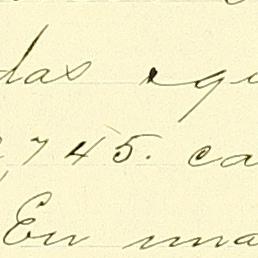 das equ
,745. ca
En una